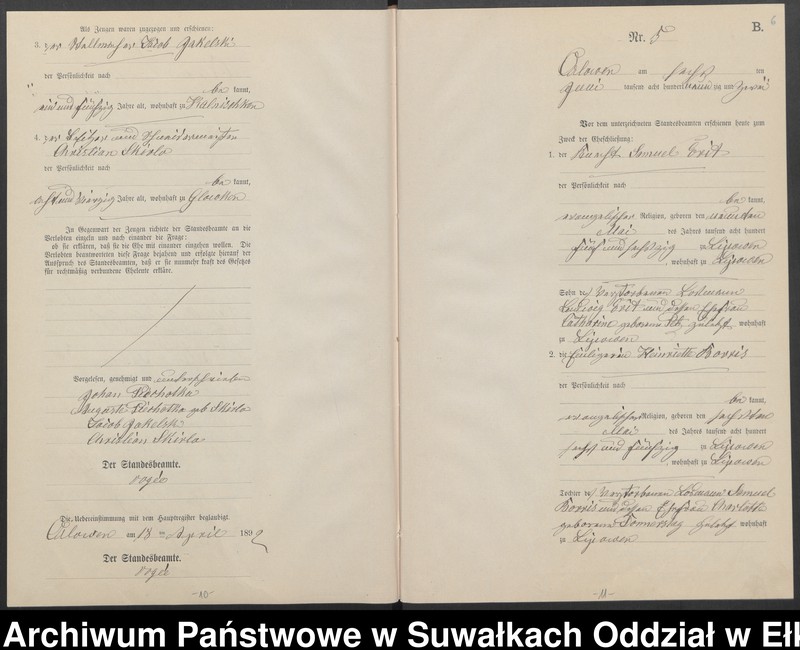 Als Zeugen waren zugezogen und erschienen:
3. der Wallmeister Jacob Jakelski
der Persönlichkeit nach
be kannt,
ein und fünfzig Jahre alt, wohnhaft zu Kalnischken
4. der Besitzer und
Christian Skirlo
der Persönlichkeit nach
be kannt,
acht und vierzig Jahre alt, wohnhaft zu Glowken
In Gegenwart der Zeugen richtete der Standesbeamte an die
Verlobten einzeln und nach einander die Frage:
ob sie erklären, daß sie die Ehe mit einander eingehen wollen. Die
Verlobten beantworteten diese Frage bejahend und erfolgte hierauf der
Ausspruch des Standesbeamten, daß er sie nunmehr kraft des Gesetzes
für rechtmäßig verbundene Eheleute erkläre.
Vorgelesen, genehmigt und unterschrieben
Johan Piechotka
Auguste Piechotka geb Skirlo
Jacob Jakelski
Christian Skirlo
Der Standesbeamte.
Die Uebereinstimmung mit dem Hauptregister beglaubigt.
Czlowen am 18 ten April 1892
Der Standesbeamte.
-10-
B.
6
Nr. 5
Czlowen am sechs ten
Juni tausend acht hundert neun zig und zwei
Vor dem unterzeichneten Standesbeamten erschienen heute zum
Zweck der Eheschließung:
1. der Knecht Samuel Crit
der Persönlichkeit nach
be kannt,
evangelischer Religion, geboren den neunten
Mai des Jahres tausend acht hundert
fünf und sechszig zu Lipowen
, wohnhaft zu Lipowen
Sohn des verstorbenen Losmann
Ludwig Crit und dessen Ehefrau
Catharine geborene zuletzt wohnhaft
zu Lipowen
2. die Einliegerin Heinriette Borris
der Persönlichkeit nach
be kannt,
evangelischer Religion, geboren den sechsten
Mai des Jahres tausend acht hundert
sechs und fünfzig zu Lipowen
, wohnhaft zu Lipowen
Tochter des verstorbenen Losmann Samuel
Borris und dessen Ehefrau Charlotte
geborene Donnerstag zuletzt wohnhaft
zu Lipowen
-11-
Archiwum Państwowe w Suwałkach Oddział w Ełk